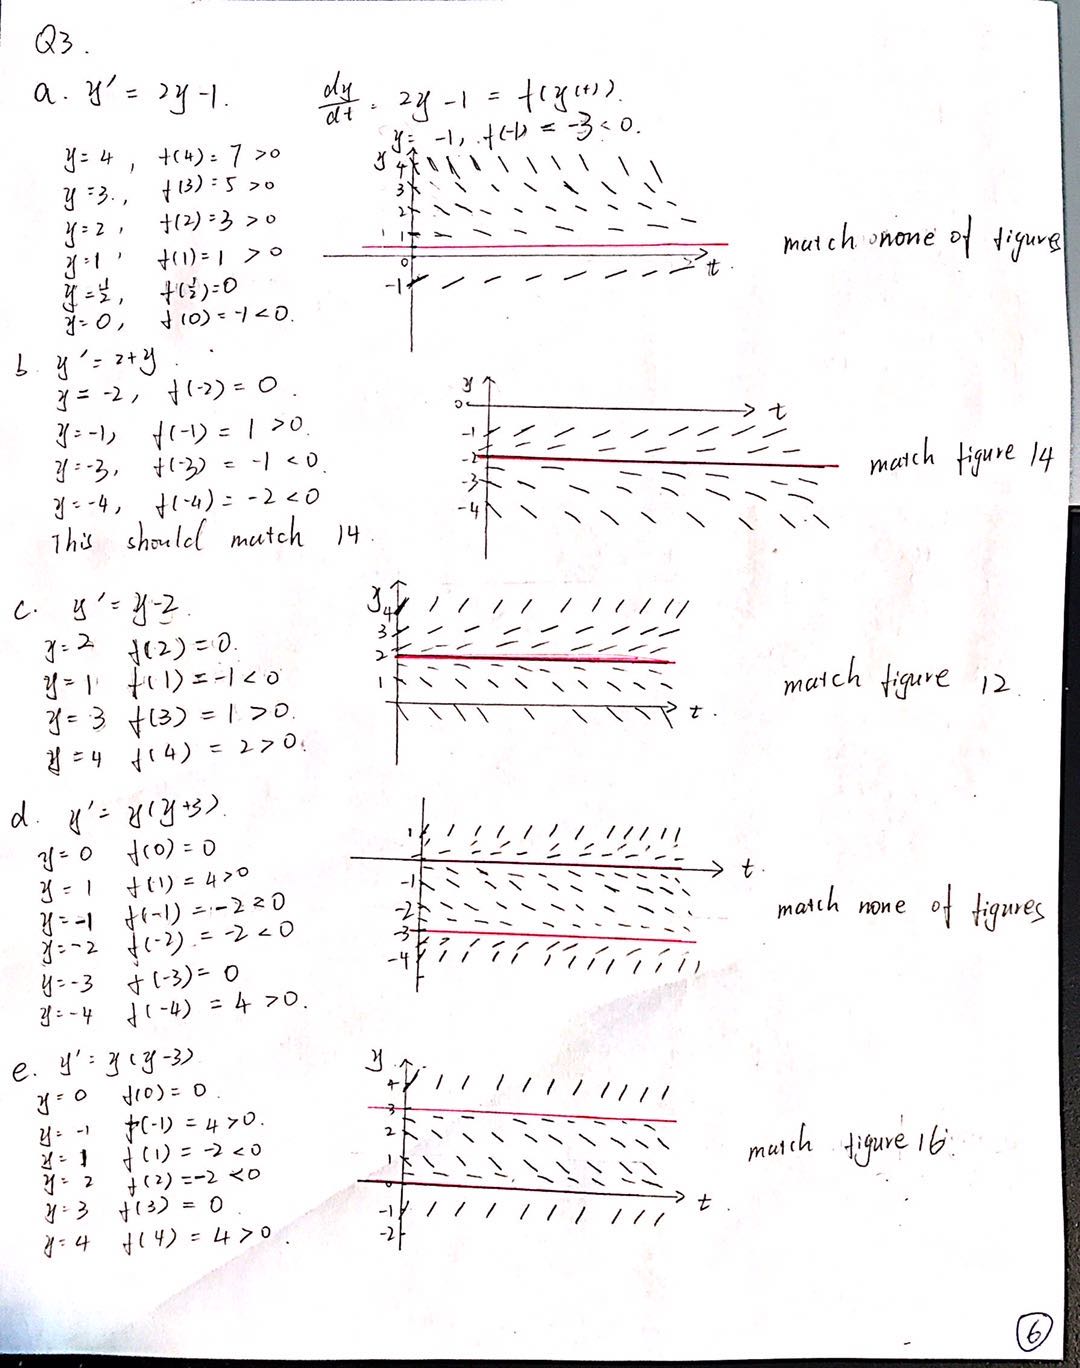 Q3.
a. y' = 2y-1.
dy/dt = 2y-1 = f(y(t)).
y= -1, f(-1) = -3<0.
y=4, f(4)=7 >0
y=3., f(3)=5 >0
y=2, f(2)=3 >0
y=1, f(1)=1 >0
y=1/2, f(1/2)=0
y=0, f(0)=-1<0.
y
4
3
2
1
0
-1
t.
match none of figures
b. y'=2+y.
y=-2, f(-2)=0.
y=-1, f(-1)=1>0.
y=-3, f(-3)=-1<0.
y=-4, f(-4)=-2<0
This should match 14.
y
0
-1
-2
-3
-4
t
match figure 14
c. y'=y-2.
y=2 f(2)=0.
y=1 f(1)=-1<0
y=3 f(3)=1>0.
y=4 f(4)=2>0.
y
4
3
2
1
t.
match figure 12.
d. y'=y(y+3).
y=0 f(0)=0
y=1 f(1)=4>0
y=-1 f(-1)=-2<0
y=-2 f(-2)=-2<0
y=-3 f(-3)=0
y=-4 f(-4)=4>0.
1
-1
-2
-3
-4
t.
match none of figures
e. y'=y(y-3)
y=0 f(0)=0.
y=-1 f(-1)=4>0.
y=1 f(1)=-2<0
y=2 f(2)=-2<0
y=3 f(3)=0.
y=4 f(4)=4>0.
y
4
3
2
1
0
-1
-2
t
match figure 16.
6